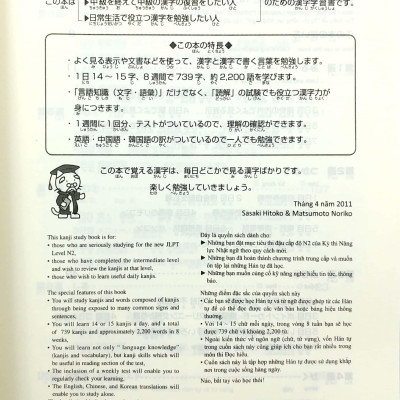 この本は
▶中級を終えて中級の漢字の復習をしたい人
のための漢字学習書です。
▶日常生活で役立つ漢字を勉強したい人
◆この本の特長◆
・よく見る表示や文書などを使って、漢字と漢字で書く言葉を勉強します。
・1日14～15字、8週間で739字、約2,200語を学びます。
・「言語知識（文字・語彙）」だけでなく、「読解」の試験でも役立つ漢字力が
身につきます。
・1週間に1回分、テストがついているので、理解の確認ができます。
・英語・中国語・韓国語の訳がついているので一人でも勉強できます。
この本で覚える漢字は、毎日どこかで見る漢字ばかりです。
楽しく勉強していきましょう。
Tháng 4 năm 2011
Sasaki Hitoko & Matsumoto Noriko
This kanji study book is for:
• those who are seriously studying for the new JLPT
Level N2,
• those who have completed the intermediate level
and wish to review the kanji at that level,
• those who wish to learn useful daily kanji.
The special features of this book
• You will study kanji and words composed of kanjis
through being exposed to many common signs and
sentences.
• You will learn 14 or 15 kanjis a day, and a total
of 739 kanjis and approximately 2,200 words in 8
weeks.
• You will learn not only " language knowledge"
(kanjis and vocabulary), but kanji skills which will
be useful in reading section of the test.
• The inclusion of a weekly test will enable you to
regularly check your learning.
• The English, Chinese, and Korean translations will
enable you to study alone.
Đây là quyển sách dành cho:
▶ Những bạn đặt mục tiêu thi đậu cấp độ N2 của Kỳ thi Năng
lực Nhật ngữ theo quy cách mới.
▶ Những bạn đã hoàn thành chương trình trung cấp và muốn
ôn tập lại những Hán tự đã học.
▶ Những bạn muốn củng cố kỹ năng nghe hiểu tin tức, thông
báo.
Những điểm đặc sắc của quyển sách này
• Các bạn sẽ được học Hán tự và từ ngữ được ghép từ các Hán
tự để có thể đọc được các văn bản hoặc bảng hiệu thông
thường.
• Với 14 – 15 chữ mỗi ngày, trong vòng 8 tuần bạn sẽ học
được 739 chữ và khoảng 2,200 từ.
• Ngoài kiến thức về ngôn ngữ (chữ, từ vựng), vốn Hán tự
trong cuốn sách này cũng giúp ích cho bạn rất nhiều trong
môn thi Đọc hiểu.
• Cuốn sách này là tập hợp những Hán tự được sử dụng khắp
nơi trong cuộc sống hàng ngày.
Nào, bắt tay vào học thôi!